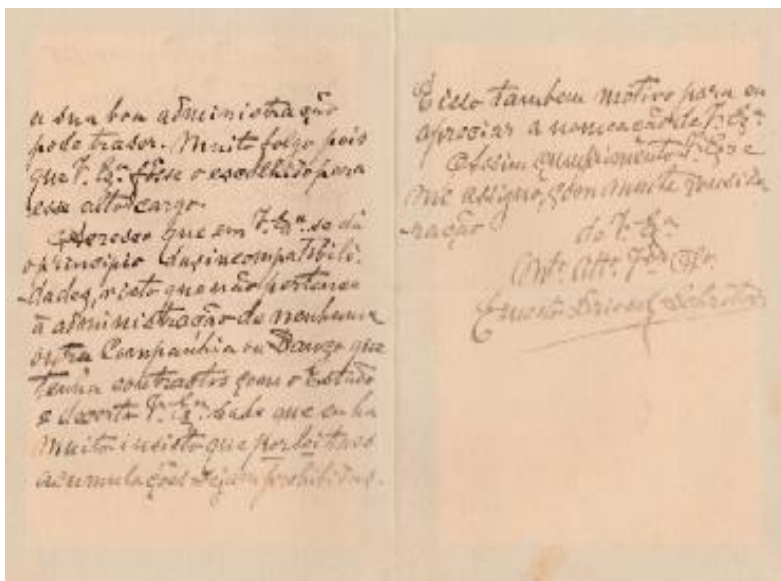 a sua boa administração
pode traser. Muito folgo pois
que V. Exª. fôsse o escolhido para
esse alto cargo.
Acresce que em V. Exª. se dá
o principio das incompatibili-
dades, visto que não pertence
á administração de nenhuma
outra Companhia ou Banco que
tenha contractos com o Estado
e decerto V. Exª. sabe que eu ha
muito insisto que por lei taes
acumulações sejam prohibidas.
É isso tambem motivo para eu
apreciar a nomeação de V. Exª.
Assim cumprimento V. Exª e
me assigno, com muita conside-
ração
de V. Exª.
Amº. Attº. Vdor
Ernesto Driesel Schröter